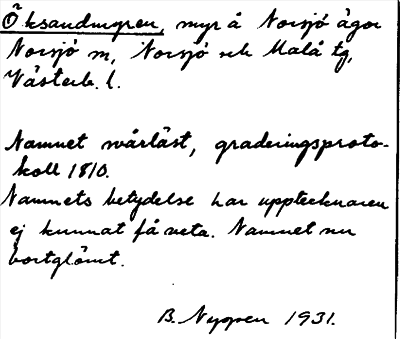 Öksandmyren, myr å Norsjö ägor
Norsjö sn, Norsjö och Malå tg,
Västerb. l.
Namnet svårläst, graderingsproto-
koll 1810.
Namnets betydelse har upptecknaren
ej kunnat få veta. Namnet nu
bortglömt.
B. Nygren 1931.